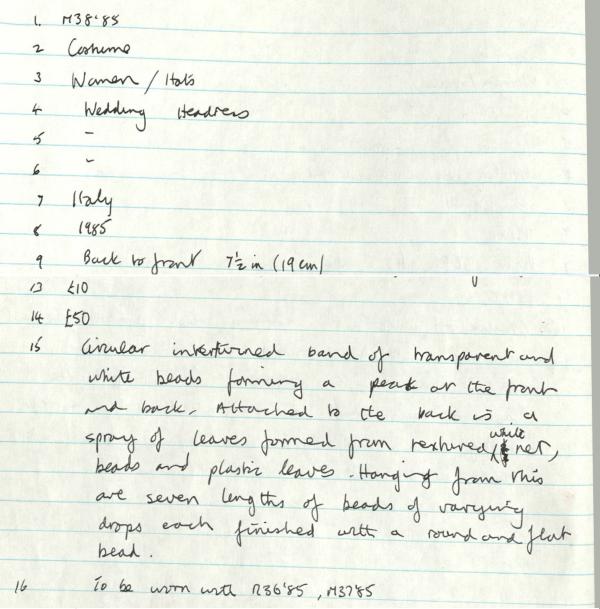 1. M38'85
2 Costume
3 Women / Hats
4 Wedding Headress
5 -
6 -
7 Italy
8 1985
9 Back to front 7½ in (19 cm)
13 £10
14 £50
15 Circular intertwined band of transparent and
white beads forming a peak at the front
and back. Attached to the back is a
spray of leaves formed from textured white net,
beads and plastic leaves. Hanging from this
are seven lengths of beads of varying
drops each finished with a round and flat
bead.
16 To be worn with R36'85, M37'85